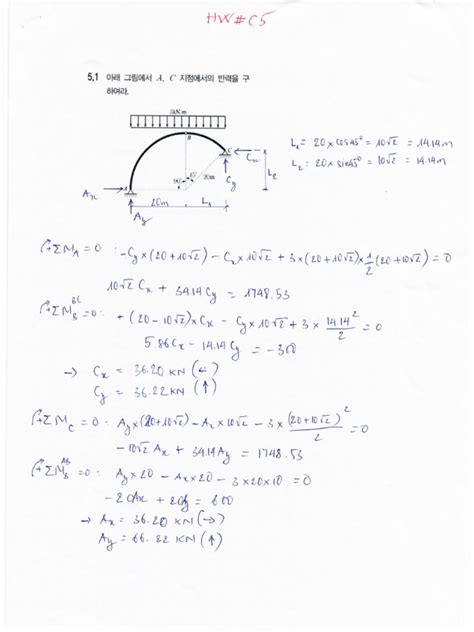 HW#C5
5.1 아래 그림에서 A, C 지점에서의 반력을 구
하여라.
3kN/m
B
C
Cx
L₁ = 20 × cos45° = 10√2 = 14.14 m
L₂ = 20 × sin45° = 10√2 = 14.14 m
90° 45° 20m
Cy
L₂
Ax
A
20m
L₁
Ay
ΣM_A = 0 : -Cy × (20+10√2) - Cx × 10√2 + 3 × (20+10√2) × 1/2 (20+10√2) = 0
10√2 Cx + 34.14 Cy = 1748.53
ΣM_B^BC = 0 : + (20-10√2) × Cx - Cy × 10√2 + 3 × 14.14²/2 = 0
5.86 Cx - 14.14 Cy = -300
→ Cx = 36.20 KN (←)
Cy = 36.22 KN (↑)
ΣM_C = 0 : Ay × (20+10√2) - Ax × 10√2 - 3 × (20+10√2)²/2 = 0
-10√2 Ax + 34.14 Ay = 1748.53
ΣM_B^AB = 0 : Ay × 20 - Ax × 20 - 3 × 20 × 10 = 0
-20Ax + 20Ay = 600
→ Ax = 36.20 KN (→)
Ay = 66.22 KN (↑)